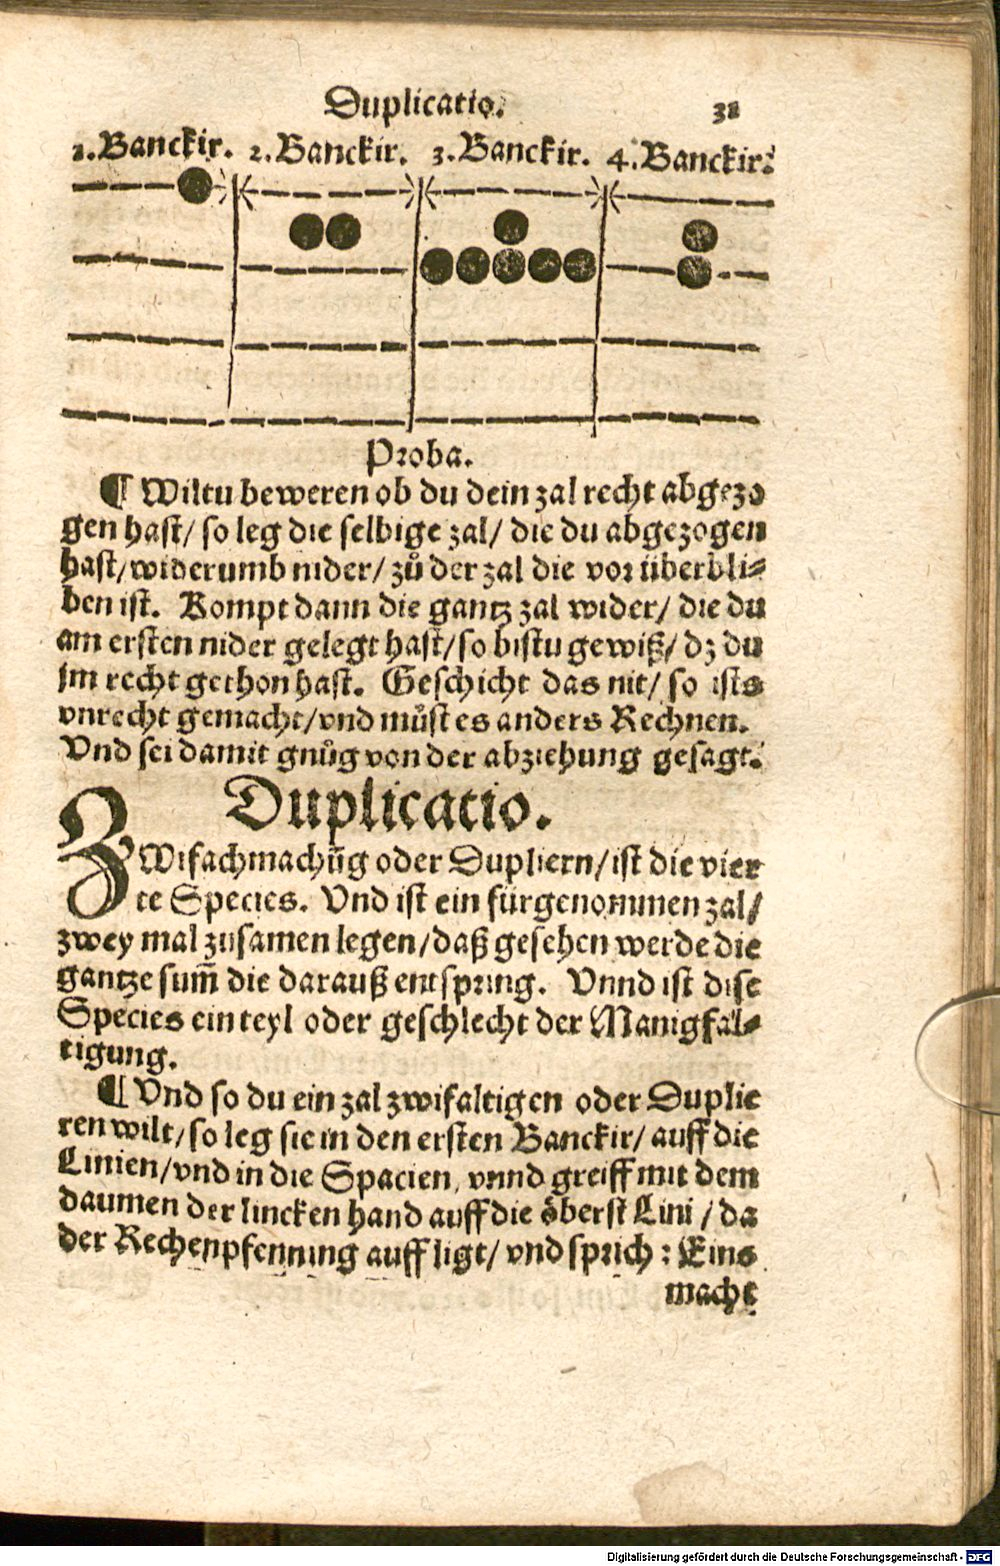 Duplicatio. 31
1. Banckir. 2. Banckir. 3. Banckir. 4. Banckir.
Proba.
¶ Wiltu beweren ob du dein zal recht abgezo
gen hast/ so leg die selbige zal/ die du abgezogen
hast/ widerumb nider/ zů der zal die vor überbli⸗
ben ist. Kompt dann die gantz zal wider/ die du
am ersten nider gelegt hast/ so bistu gewiß/ dz du
jm recht gethon hast. Geschicht das nit/ so ists
vnrecht gemacht/ vnd můst es anders Rechnen.
Vnd sei damit gnůg von der abziehung gesagt.
Duplicatio.
ZWifachmachūg oder Dupliern/ ist die vier
te Species. Vnd ist ein fürgenommen zal/
zwey mal zusamen legen/ daß gesehen werde die
gantze sum̄ die darauß entspring. Vnnd ist dise
Species ein teyl oder geschlecht der Manigfal⸗
tigung.
¶ Vnd so du ein zal zwifaltigen oder Duplie
ren wilt/ so leg sie in den ersten Banckir/ auff die
Linien/ vnd in die Spacien, vnnd greiff mit dem
daumen der lincken hand auff die öberst Lini/ da
der Rechenpfenning auff ligt/ vnd sprich: Eins
macht
Digitalisierung gefördert durch die Deutsche Forschungsgemeinschaft - DFG